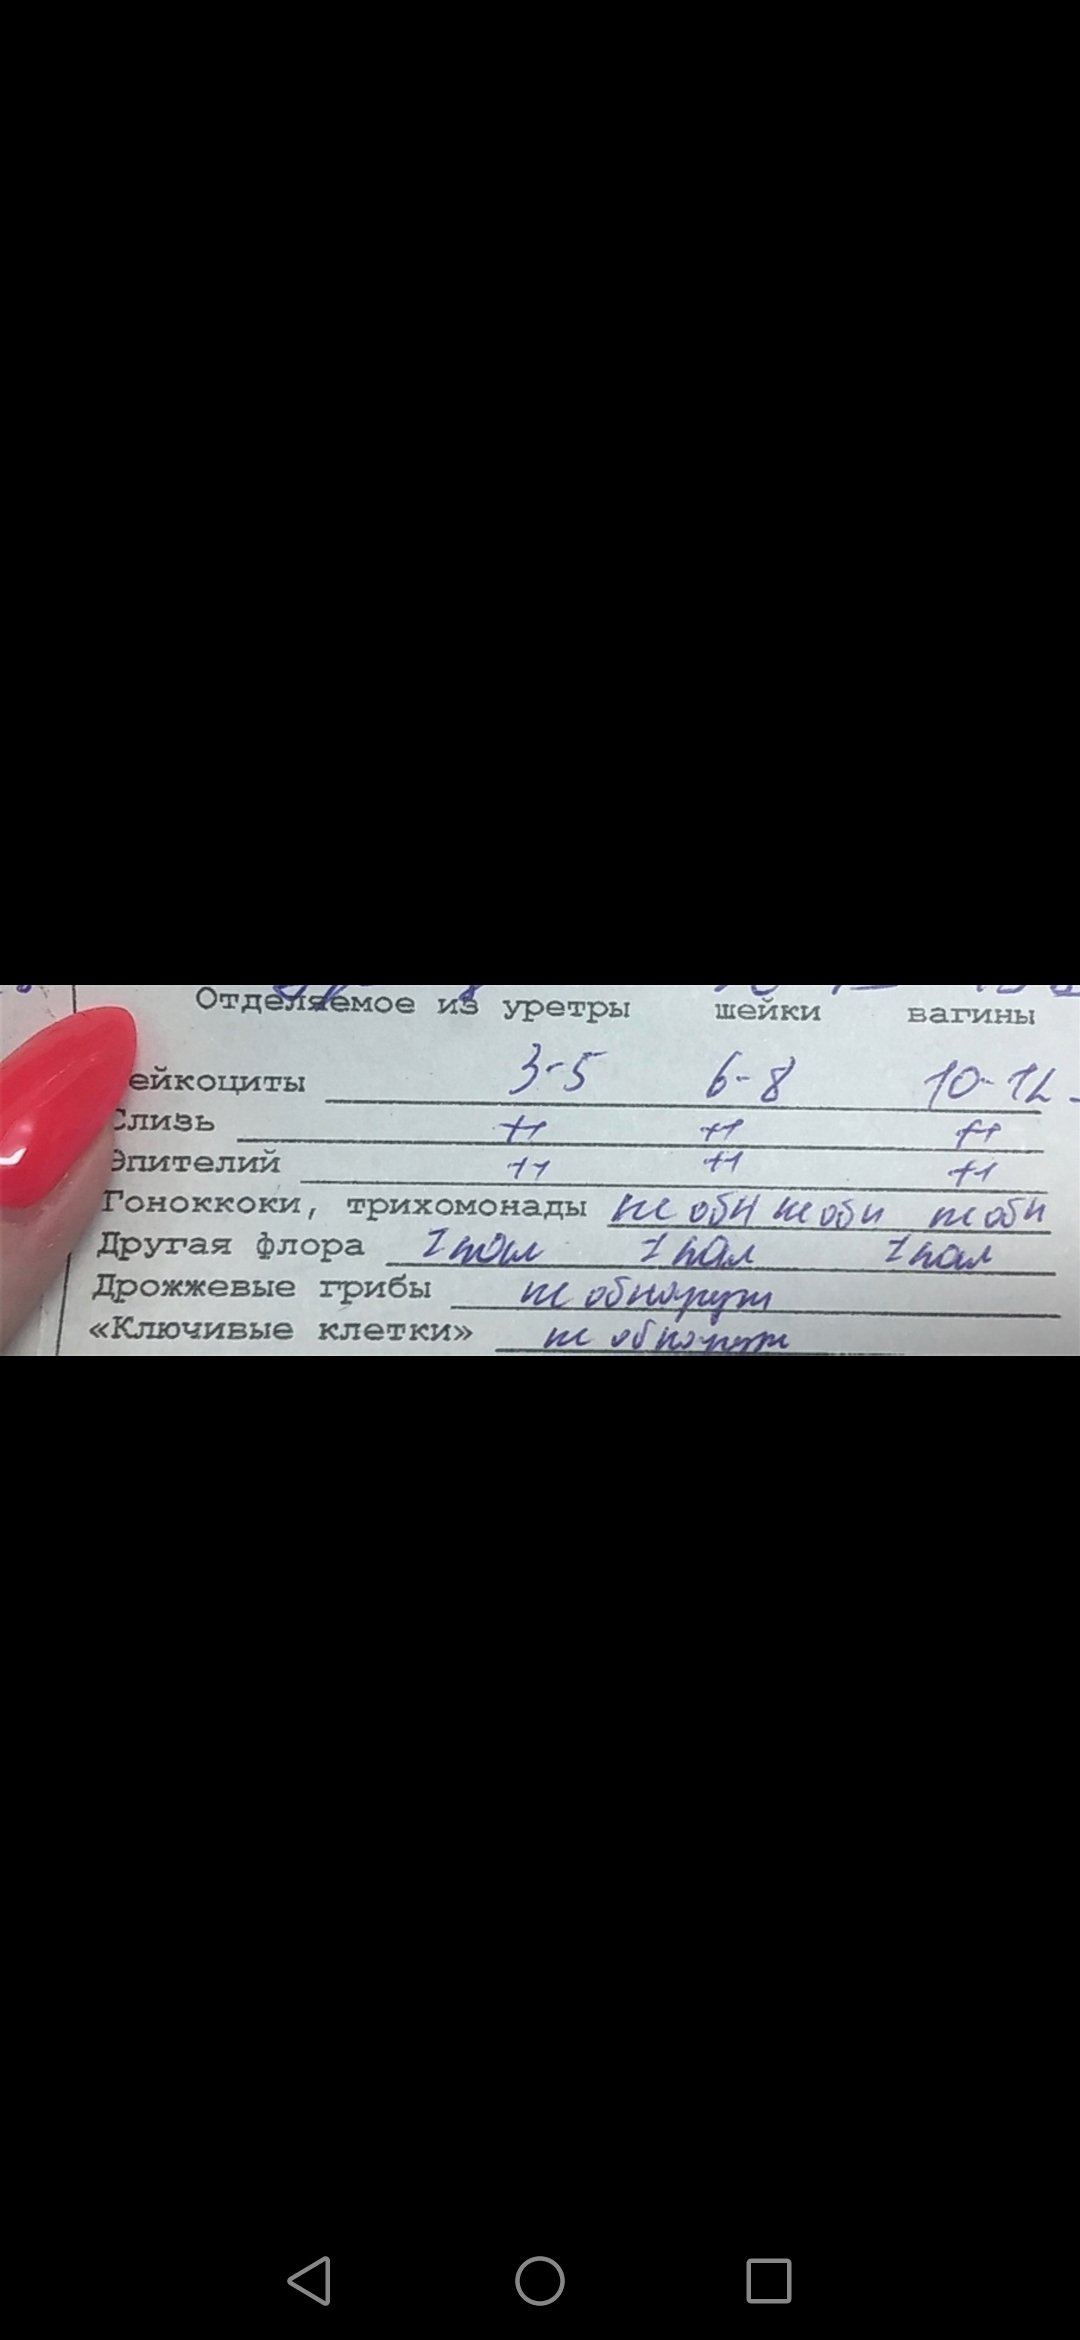 Отделяемое из уретры шейки вагины
ейкоциты 3-5 6-8 10-12
Слизь ++ ++ ++
Эпителий ++ ++ ++
Гоноккоки, трихомонады не обн не обн не обн
Другая флора пал пал пал
Дрожжевые грибы не обнаруж
«Ключивые клетки» не обнаруж